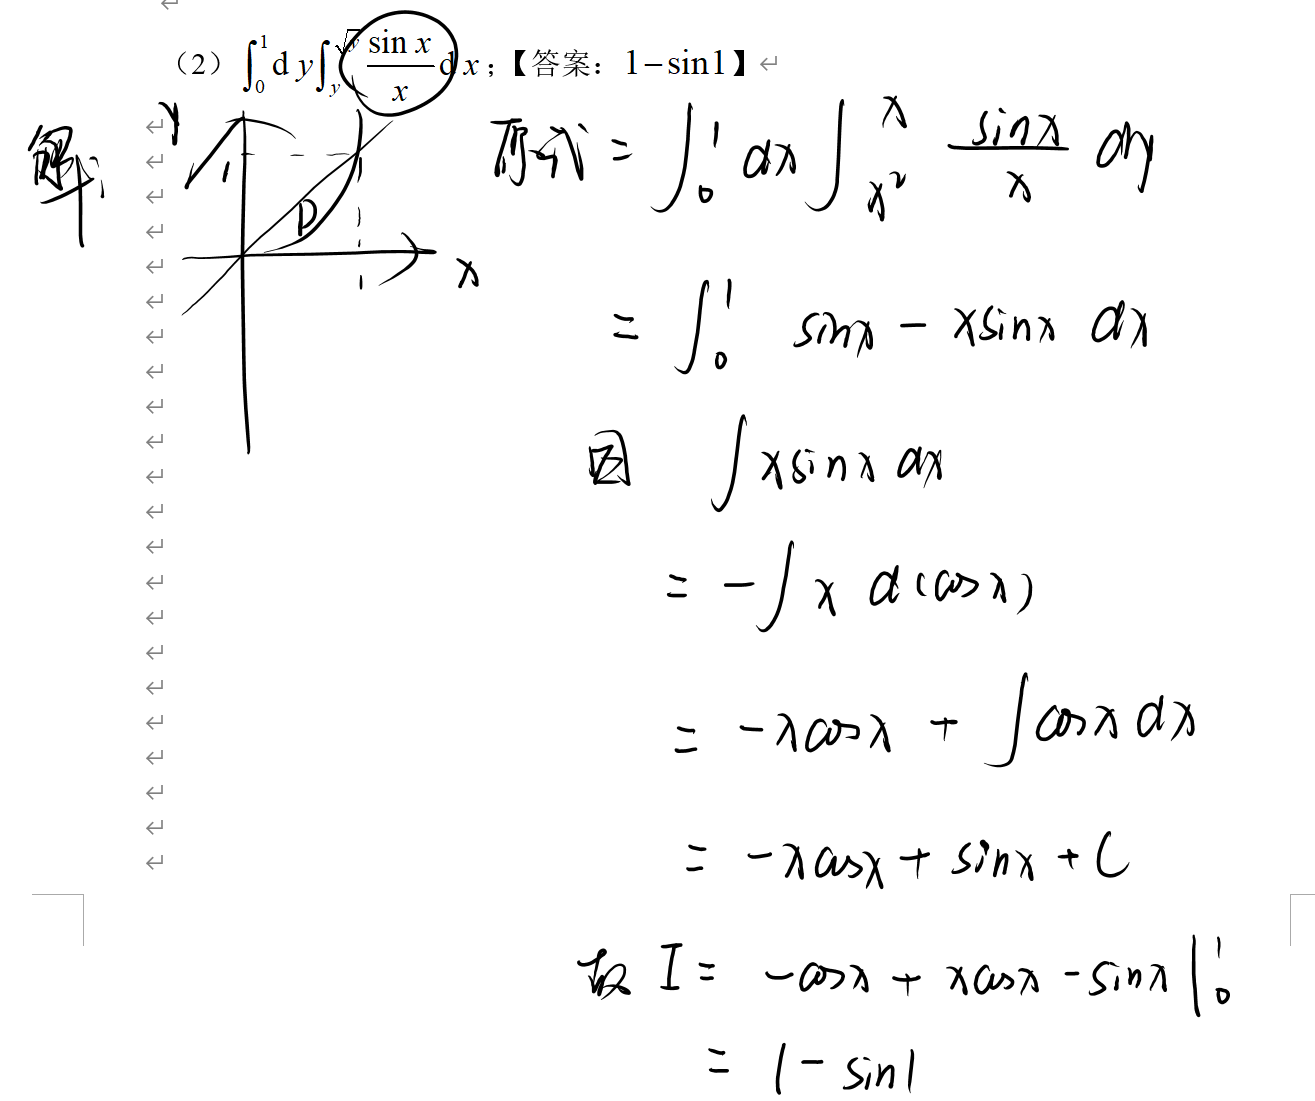 （2）∫₀¹ d y ∫_y^{√y} sin x / x d x；【答案：1−sin1】
解：
y
1
D
1
x
原式 = ∫₀¹ dx ∫_{x²}^{x} sinx / x dy
= ∫₀¹ sinx − xsinx dx
因 ∫ xsinx dx
= −∫ x d(cosx)
= −xcosx + ∫ cosx dx
= −xcosx + sinx + C
故 I = −cosx + xcosx − sinx |₀¹
= 1 − sin1